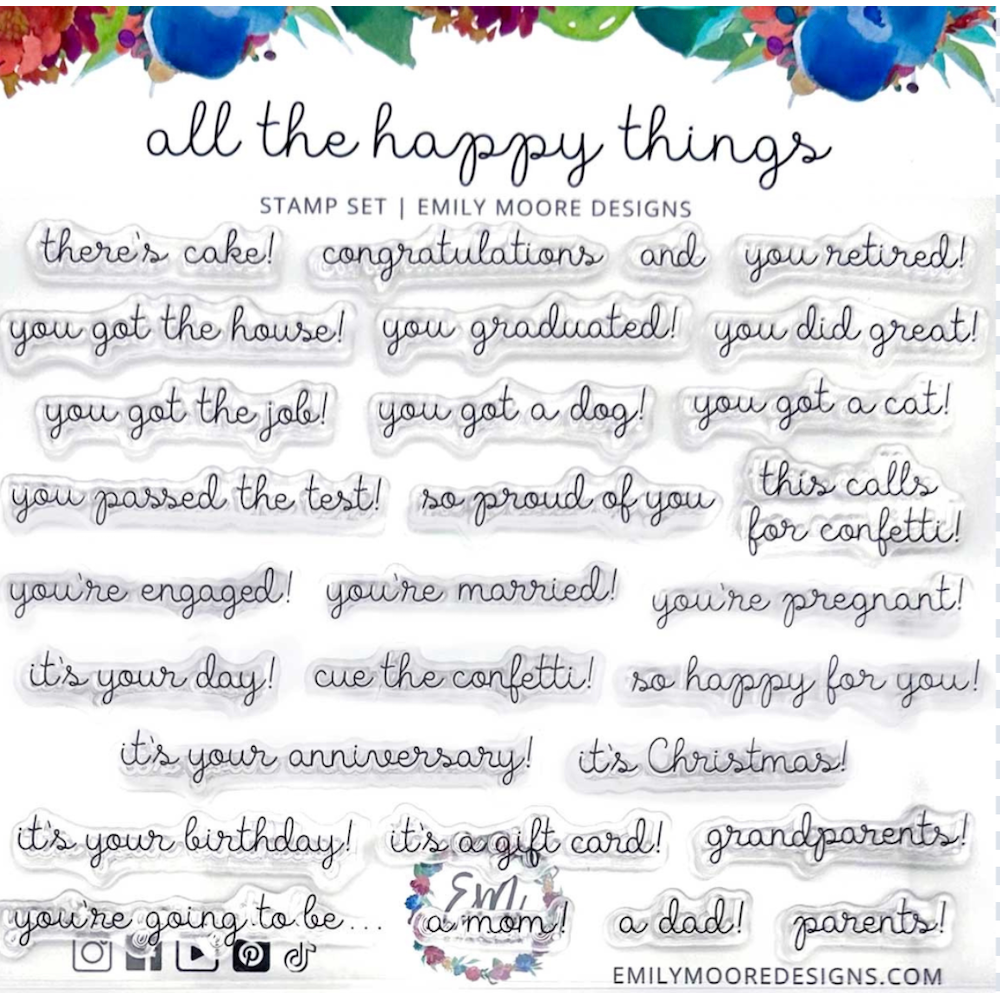 all the happy things
STAMP SET | EMILY MOORE DESIGNS
there's cake! congratulations and you retired!
you got the house! you graduated! you did great!
you got the job! you got a dog! you got a cat!
you passed the test! so proud of you this calls
for confetti!
you're engaged! you're married! you're pregnant!
it's your day! cue the confetti! so happy for you!
it's your anniversary! it's Christmas!
it's your birthday! it's a gift card! grandparents!
you're going to be... a mom! a dad! parents!
EMILYMOOREDESIGNS.COM